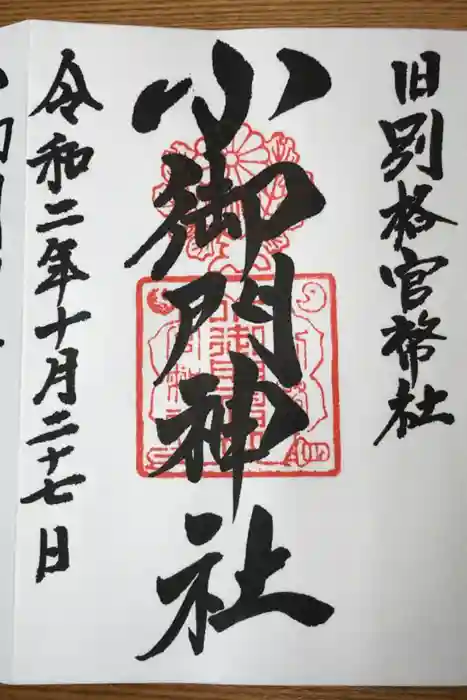 旧別格官幣社
小御門神社
令和二年十月二十七日